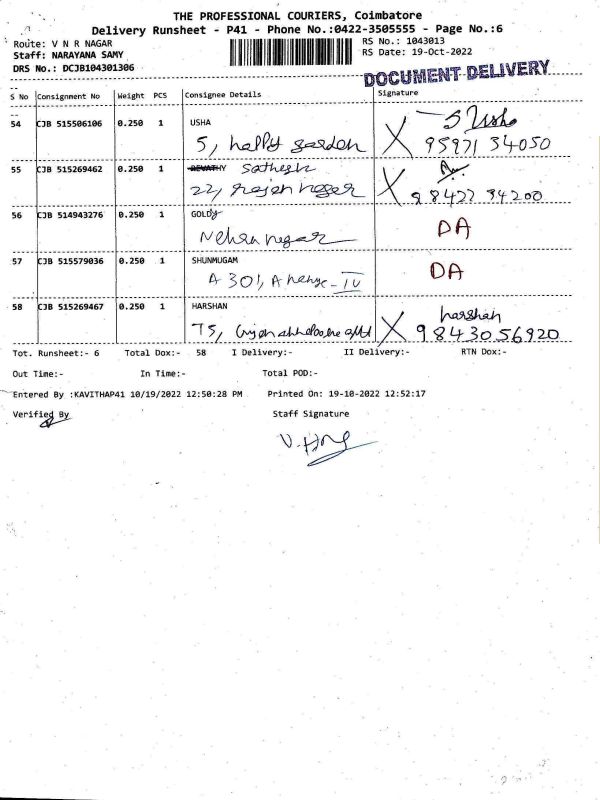 THE PROFESSIONAL COURIERS, Coimbatore
Delivery Runsheet - P41 - Phone No.:0422-3505555 - Page No.:6
Route: V N R NAGAR
RS No.: 1043013
Staff: NARAYANA SAMY
RS Date: 19-Oct-2022
DRS No.: DCJB104301306
DOCUMENT DELIVERY
S No Consignment No Weight PCS Consignee Details Signature
54 CJB 515506106 0.250 1 USHA
S Usha
5, happy garden 95971 34050
55 CJB 515269462 0.250 1 REVATHY Sathesh
22, rajan nagar 98427 34200
56 CJB 514943276 0.250 1 GOLDY
Nehru nagar DA
57 CJB 515579036 0.250 1 SHUNMUGAM
A 301, - IV DA
58 CJB 515269467 0.250 1 HARSHAN harshan
T5, 98430 56920
Tot. Runsheet:- 6 Total Dox:- 58 I Delivery:- II Delivery:- RTN Dox:-
Out Time:- In Time:- Total POD:-
Entered By :KAVITHAP41 10/19/2022 12:50:28 PM Printed On: 19-10-2022 12:52:17
Verified By Staff Signature